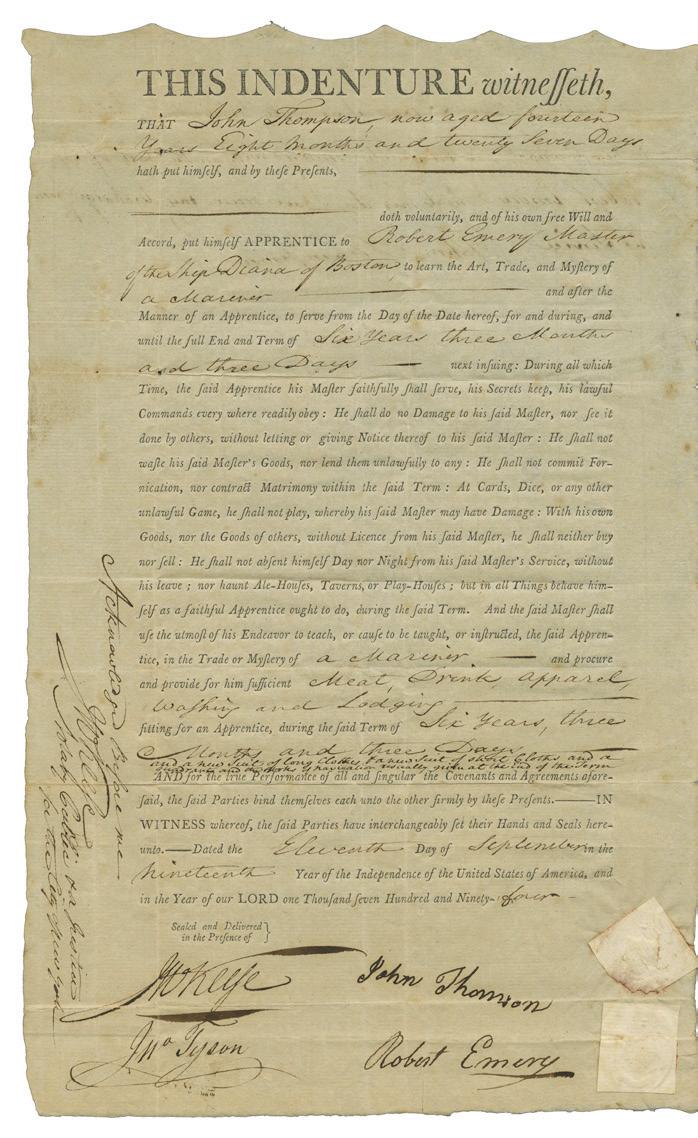 THIS INDENTURE witneſſeth,
THAT John Thompson, now aged fourteen
Years Eight Months and twenty Seven Days
hath put himſelf, and by theſe Preſents,
doth voluntarily, and of his own free Will and
Accord, put himſelf APPRENTICE to Robert Emery Master
of the Ship Diana of Boston to learn the Art, Trade, and Myſtery of
a Mariner and after the
Manner of an Apprentice, to ſerve from the Day of the Date hereof, for and during, and
until the full End and Term of Six Years three Months
and three Days next inſuing: During all which
Time, the ſaid Apprentice his Maſter faithfully ſhall ſerve, his Secrets keep, his lawful
Commands every where readily obey: He ſhall do no Damage to his ſaid Maſter, nor ſee it
done by others, without letting or giving Notice thereof to his ſaid Maſter: He ſhall not
waſte his ſaid Maſter's Goods, nor lend them unlawfully to any: He ſhall not commit For-
nication, nor contract Matrimony within the ſaid Term: At Cards, Dice, or any other
unlawful Game, he ſhall not play, whereby his ſaid Maſter may have Damage: With his own
Goods, nor the Goods of others, without Licence from his ſaid Maſter, he ſhall neither buy
nor ſell: He ſhall not abſent himſelf Day nor Night from his ſaid Maſter's Service, without
his leave; nor haunt Ale-Houſes, Taverns, or Play-Houſes; but in all Things behave him-
ſelf as a faithful Apprentice ought to do, during the ſaid Term. And the ſaid Maſter ſhall
uſe the utmoſt of his Endeavor to teach, or cauſe to be taught, or inſtructed, the ſaid Appren-
tice, in the Trade or Myſtery of a Mariner and procure
and provide for him ſufficient Meat, Drink, apparel,
washing and Lodging
fitting for an Apprentice, during the ſaid Term of Six Years, three
Months and three Days
and a new Suit of long Cloths, & a new Suit of short Cloths and a
Quadrant and the Books of navigation usually given at the end of the Term
AND for the true Performance of all and ſingular the Covenants and Agreements afore-
ſaid, the ſaid Parties bind themſelves each unto the other firmly by theſe Preſents.——IN
WITNESS whereof, the ſaid Parties have interchangeably ſet their Hands and Seals here-
unto.——Dated the Eleventh Day of September in the
Nineteenth Year of the Independence of the United States of America, and
in the Year of our LORD one Thouſand ſeven Hundred and Ninety-four
Sealed and Delivered
in the Preſence of
John Thomson
Jno Tyson
Robert Emery
Acknowledged Before me
Notary Public & a Justice
for the City New York